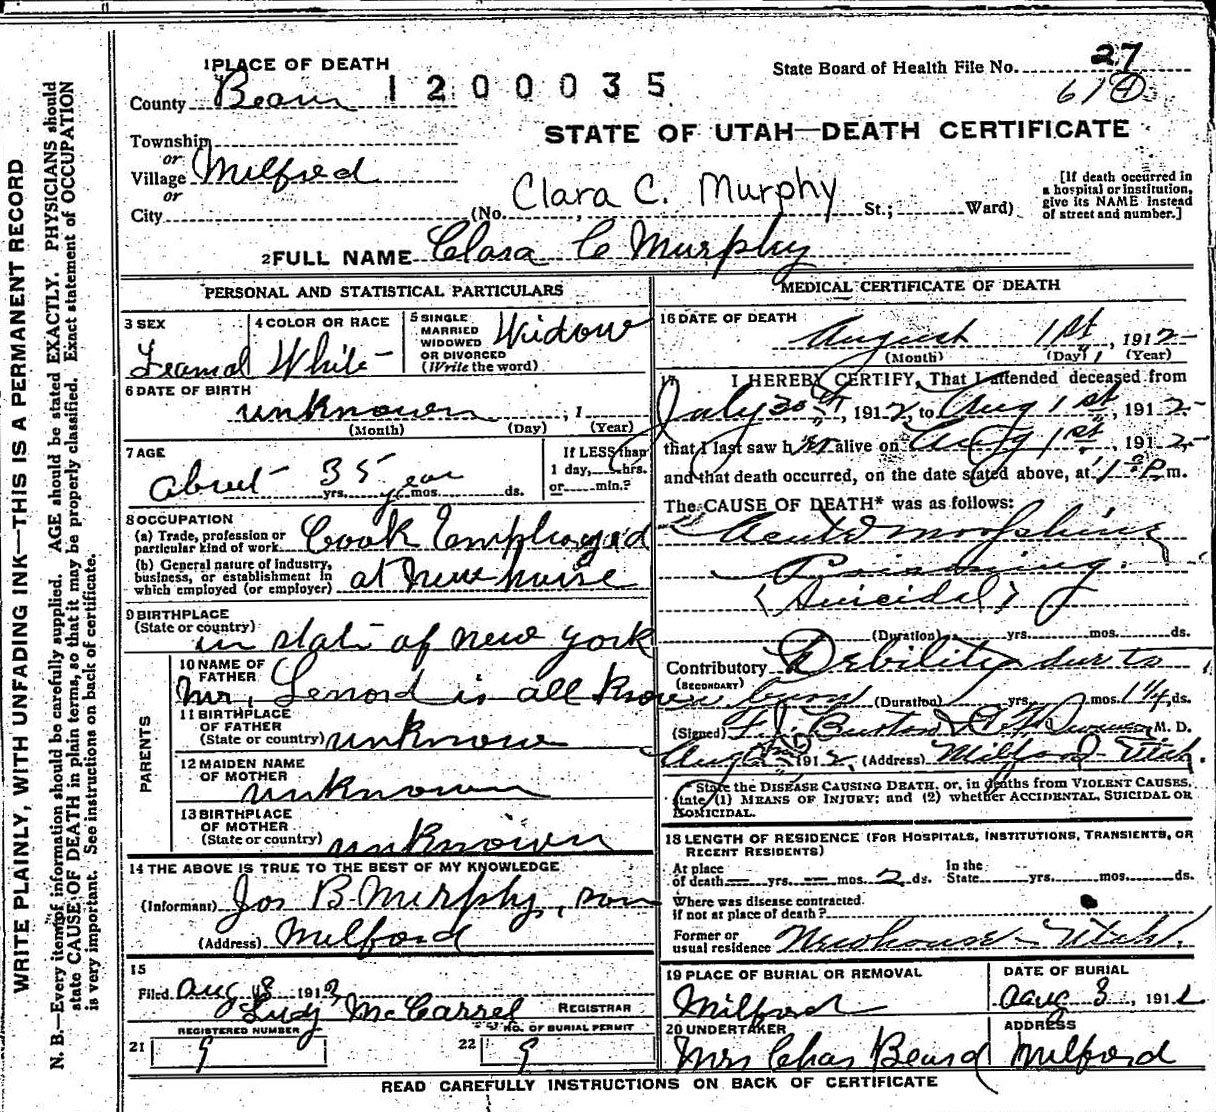 WRITE PLAINLY, WITH UNFADING INK—THIS IS A PERMANENT RECORD
N. B.—Every item of information should be carefully supplied. AGE should be stated EXACTLY. PHYSICIANS should
state CAUSE OF DEATH in plain terms, so that it may be properly classified. Exact statement of OCCUPATION
is very important. See instructions on back of certificate.
1 PLACE OF DEATH
County Beaver 1200035
State Board of Health File No. 27
61
STATE OF UTAH—DEATH CERTIFICATE
Township
or
Village Milford
or
City (No. Clara C. Murphy St.; Ward)
[If death occurred in
a hospital or institution,
give its NAME instead
of street and number.]
2 FULL NAME Clara C Murphy
PERSONAL AND STATISTICAL PARTICULARS
3 SEX
Feamal
4 COLOR OR RACE
White
5 SINGLE
MARRIED
WIDOWED
OR DIVORCED
(Write the word)
Widow
6 DATE OF BIRTH
unknown , 1
(Month) (Day) (Year)
7 AGE
about 35 year
yrs. mos. ds.
If LESS than
1 day, hrs.
or min.?
8 OCCUPATION
(a) Trade, profession or
particular kind of work Cook Employed
(b) General nature of industry,
business, or establishment in
which employed (or employer) at Newhouse
9 BIRTHPLACE
(State or country)
in state of new york
PARENTS
10 NAME OF
FATHER
Mr. Lenord is all known
11 BIRTHPLACE
OF FATHER
(State or country) unknown
12 MAIDEN NAME
OF MOTHER
unknown
13 BIRTHPLACE
OF MOTHER
(State or country) unknown
14 THE ABOVE IS TRUE TO THE BEST OF MY KNOWLEDGE
(Informant) Jos B Murphy, son
(Address) Milford
15
Filed aug 8 1912
McCarrel REGISTRAR
REGISTERED NUMBER
21 9
NO. OF BURIAL PERMIT
22 9
MEDICAL CERTIFICATE OF DEATH
16 DATE OF DEATH
August 1st, 1912
(Month) (Day) (Year)
17 I HEREBY CERTIFY, That I attended deceased from
July 30th, 1912, to Aug 1st 1912
that I last saw her alive on Aug 1st 1912
and that death occurred, on the date stated above, at P m.
The CAUSE OF DEATH* was as follows:
Acute morphine
Poisoning.
(Suicidal)
(Duration) yrs. mos. ds.
Contributory Debility due to
(SECONDARY) (Duration) yrs. mos. 14 ds.
(Signed) Burton & M. D.
Aug 1912 (Address) Milford Utah.
* State the DISEASE CAUSING DEATH, or, in deaths from VIOLENT CAUSES,
state (1) MEANS OF INJURY; and (2) whether ACCIDENTAL, SUICIDAL OR
HOMICIDAL.
18 LENGTH OF RESIDENCE (FOR HOSPITALS, INSTITUTIONS, TRANSIENTS, OR
RECENT RESIDENTS)
At place
of death yrs. mos. 2 ds.
In the
State yrs. mos. ds.
Where was disease contracted
If not at place of death?
Former or
usual residence Newhouse Utah.
19 PLACE OF BURIAL OR REMOVAL
Milford
DATE OF BURIAL
aug 3, 1912
20 UNDERTAKER
Mrs Chas Beard
ADDRESS
Milford
READ CAREFULLY INSTRUCTIONS ON BACK OF CERTIFICATE